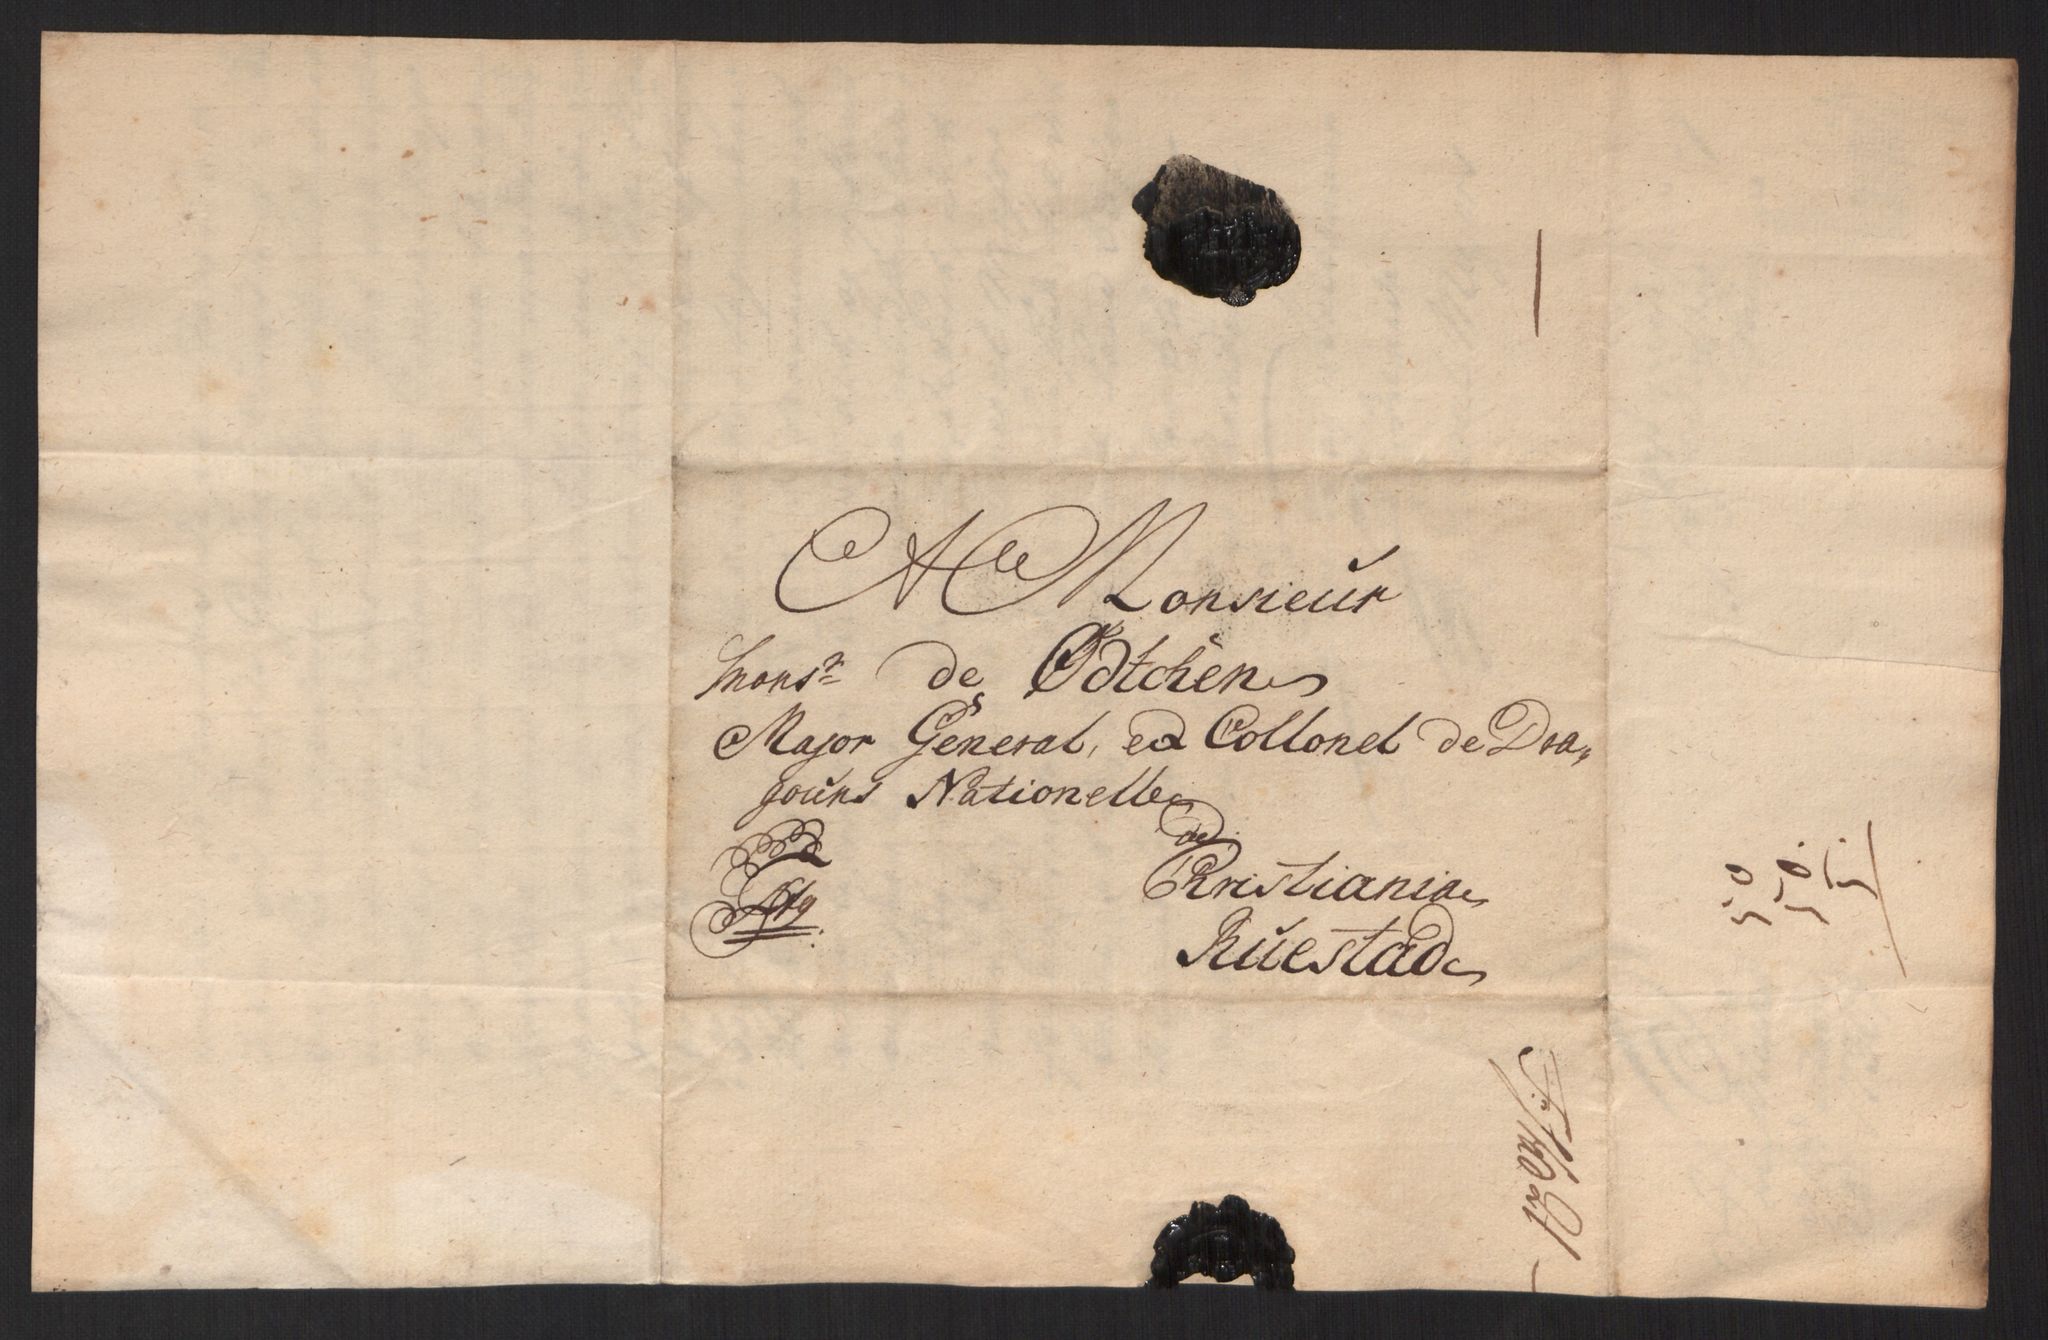 A Monsieur
Mons.r de Ödtchen
Major General, ed Collonel de Dra,,
gouns Nationelle
de
Kristiania
Ruestad